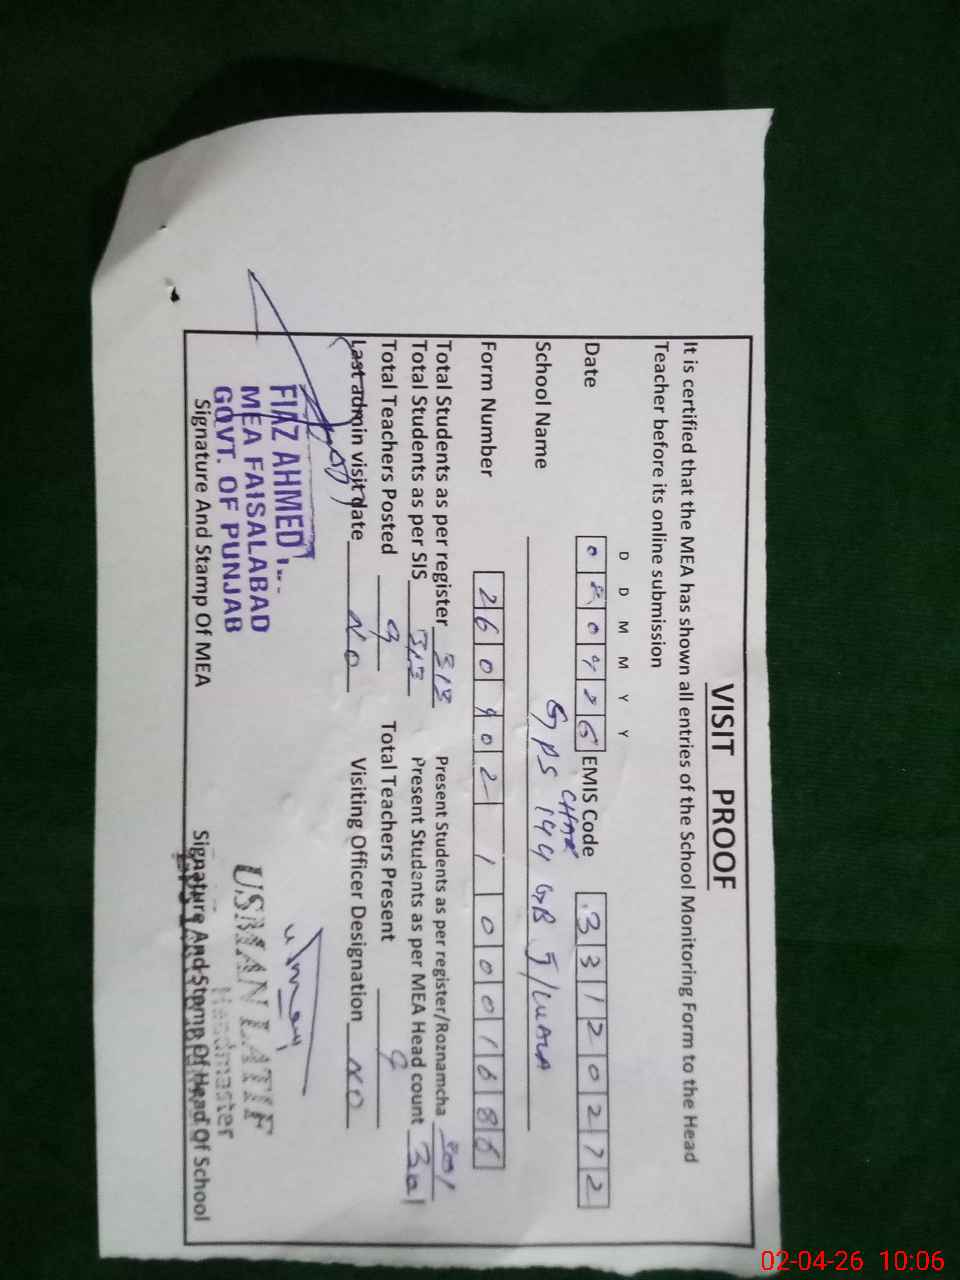 VISIT PROOF
It is certified that the MEA has shown all entries of the School Monitoring Form to the Head
Teacher before its online submission
D D M M Y Y
Date 020426 EMIS Code 33120272
School Name GPS CHAK 144 GB J/WALA
Form Number 260402 1 0001686
Total Students as per register 313 Present Students as per register/Roznamcha 301
Total Students as per SIS 313 Present Students as per MEA Head count 301
Total Teachers Posted 9 Total Teachers Present 9
Last admin visit date NO Visiting Officer Designation NO
FIAZ AHMED
MEA FAISALABAD
GOVT. OF PUNJAB
Signature And Stamp Of MEA
USMAN LATIF
Headmaster
Signature And Stamp Of Head Of School
02-04-26 10:06